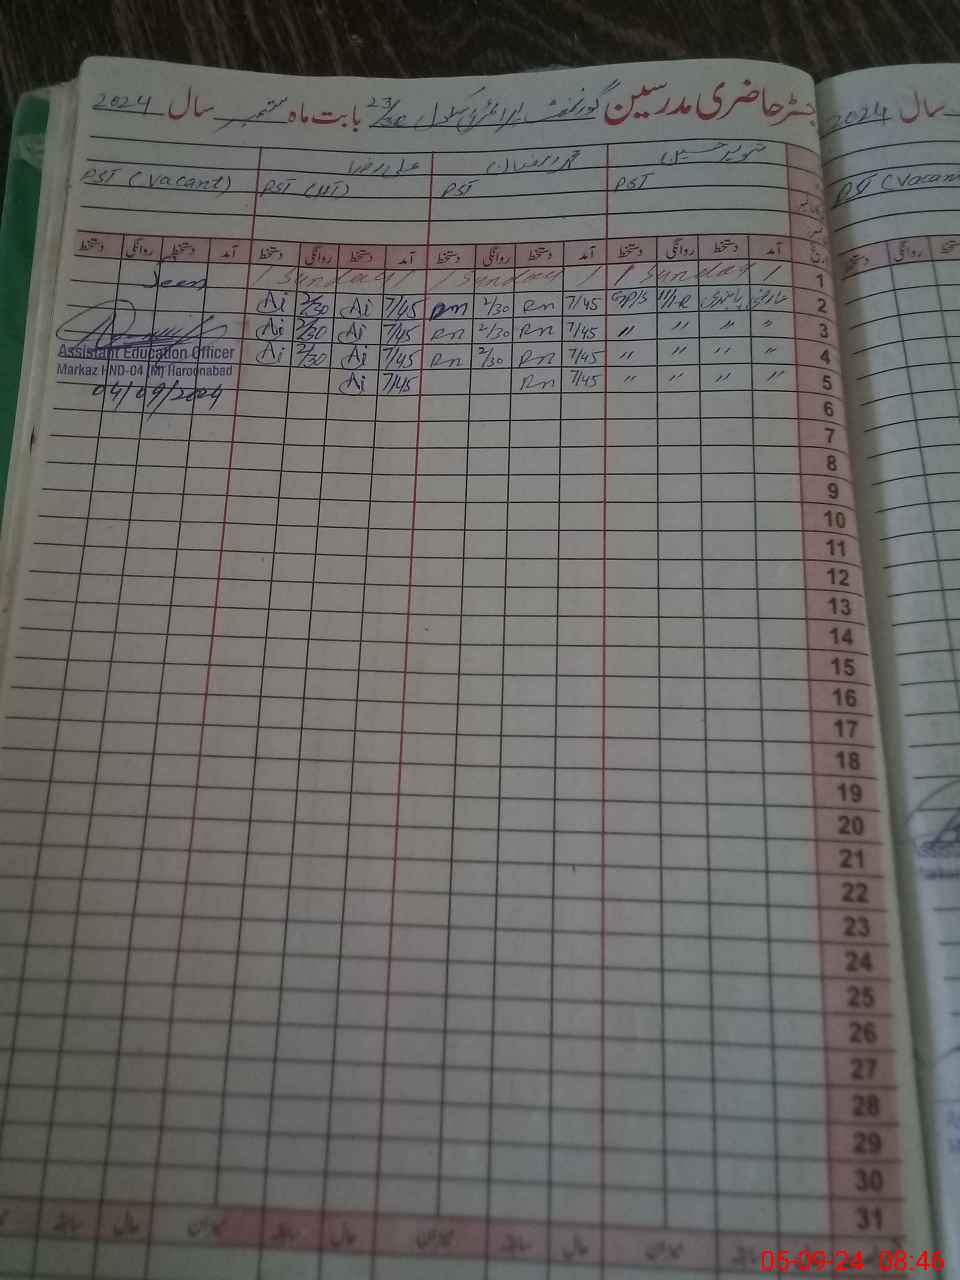 رجسٹر حاضری مدرسین گورنمنٹ پرائمری سکول 23/3R بابت ماہ ستمبر سال 2024
تنویر حسین محمد رمضان علی رضا
PST PST PST (HT) PST (Vacant)
آمد دستخط روانگی دستخط آمد دستخط روانگی دستخط آمد دستخط روانگی دستخط آمد دستخط روانگی دستخط
1 / Sunday / / Sunday / / Sunday / Seen
2 عارضی 7/45 Rn 2/30 Rn 7/45 Ai 2/30 Ai
3 " " " " 7/45 Rn 2/30 Rn 7/45 Ai 2/30 Ai
4 " " " " 7/45 Rn 2/30 Rn 7/45 Ai 2/30 Ai
5 " " " " 7/45 Rn 7/45 Ai
Assistant Education Officer
Markaz HND-04 (M) Haroonabad
04/09/2024
6
7
8
9
10
11
12
13
14
15
16
17
18
19
20
21
22
23
24
25
26
27
28
29
30
31
سال 2024
PST (Vacan
دستخط روانگی
05-09-24 08:46